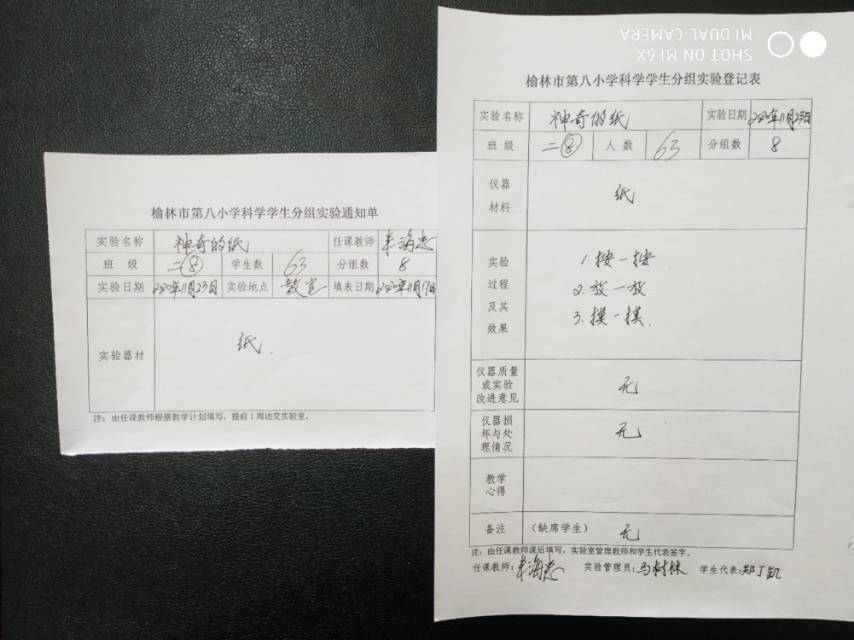 榆林市第八小学科学学生分组实验通知单
实验名称 神奇的纸 任课教师
班 级 二⑧ 学生数 63 分组数 8
实验日期 2020年11月23日 实验地点 教室 填表日期 2020年11月17日
实验器材 纸.
注：由任课教师根据教学计划填写，提前1周送交实验室。
SHOT ON MI 6X
MI DUAL CAMERA
榆林市第八小学科学学生分组实验登记表
实验名称 神奇的纸 实验日期 2020年11月23日
班 级 二⑧ 人 数 63 分组数 8
仪器
材料
纸
实验
过程
及其
效果
1.按一按
2.放一放
3.摸一摸.
仪器质量
或实验
改进意见
无
仪器损
坏与处
理情况
无
教学
心得
备注 （缺席学生） 无
注：由任课教师课后填写，实验室管理教师和学生代表签字。
任课教师： 实验管理员： 学生代表：